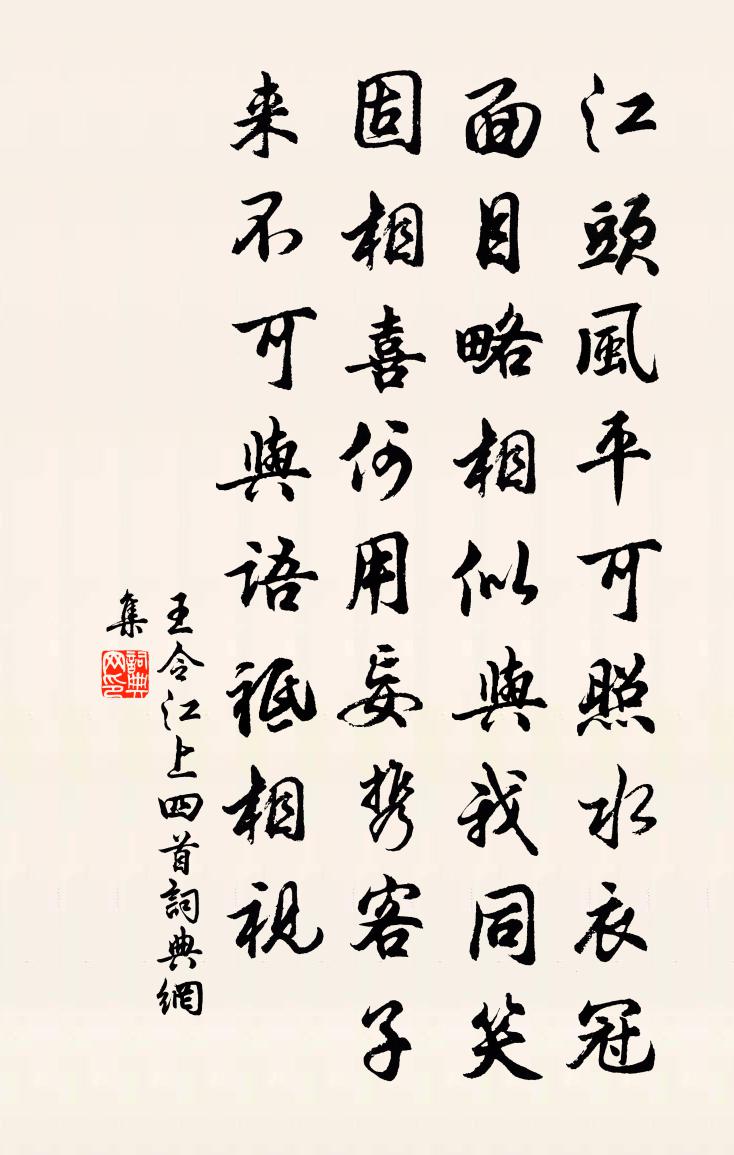 江頭風平可照水衣冠
面目略相似與我同笑
固相喜何用妄携客子
来不可與語祗相視
王令江上四首詞典網
集
詞典网印